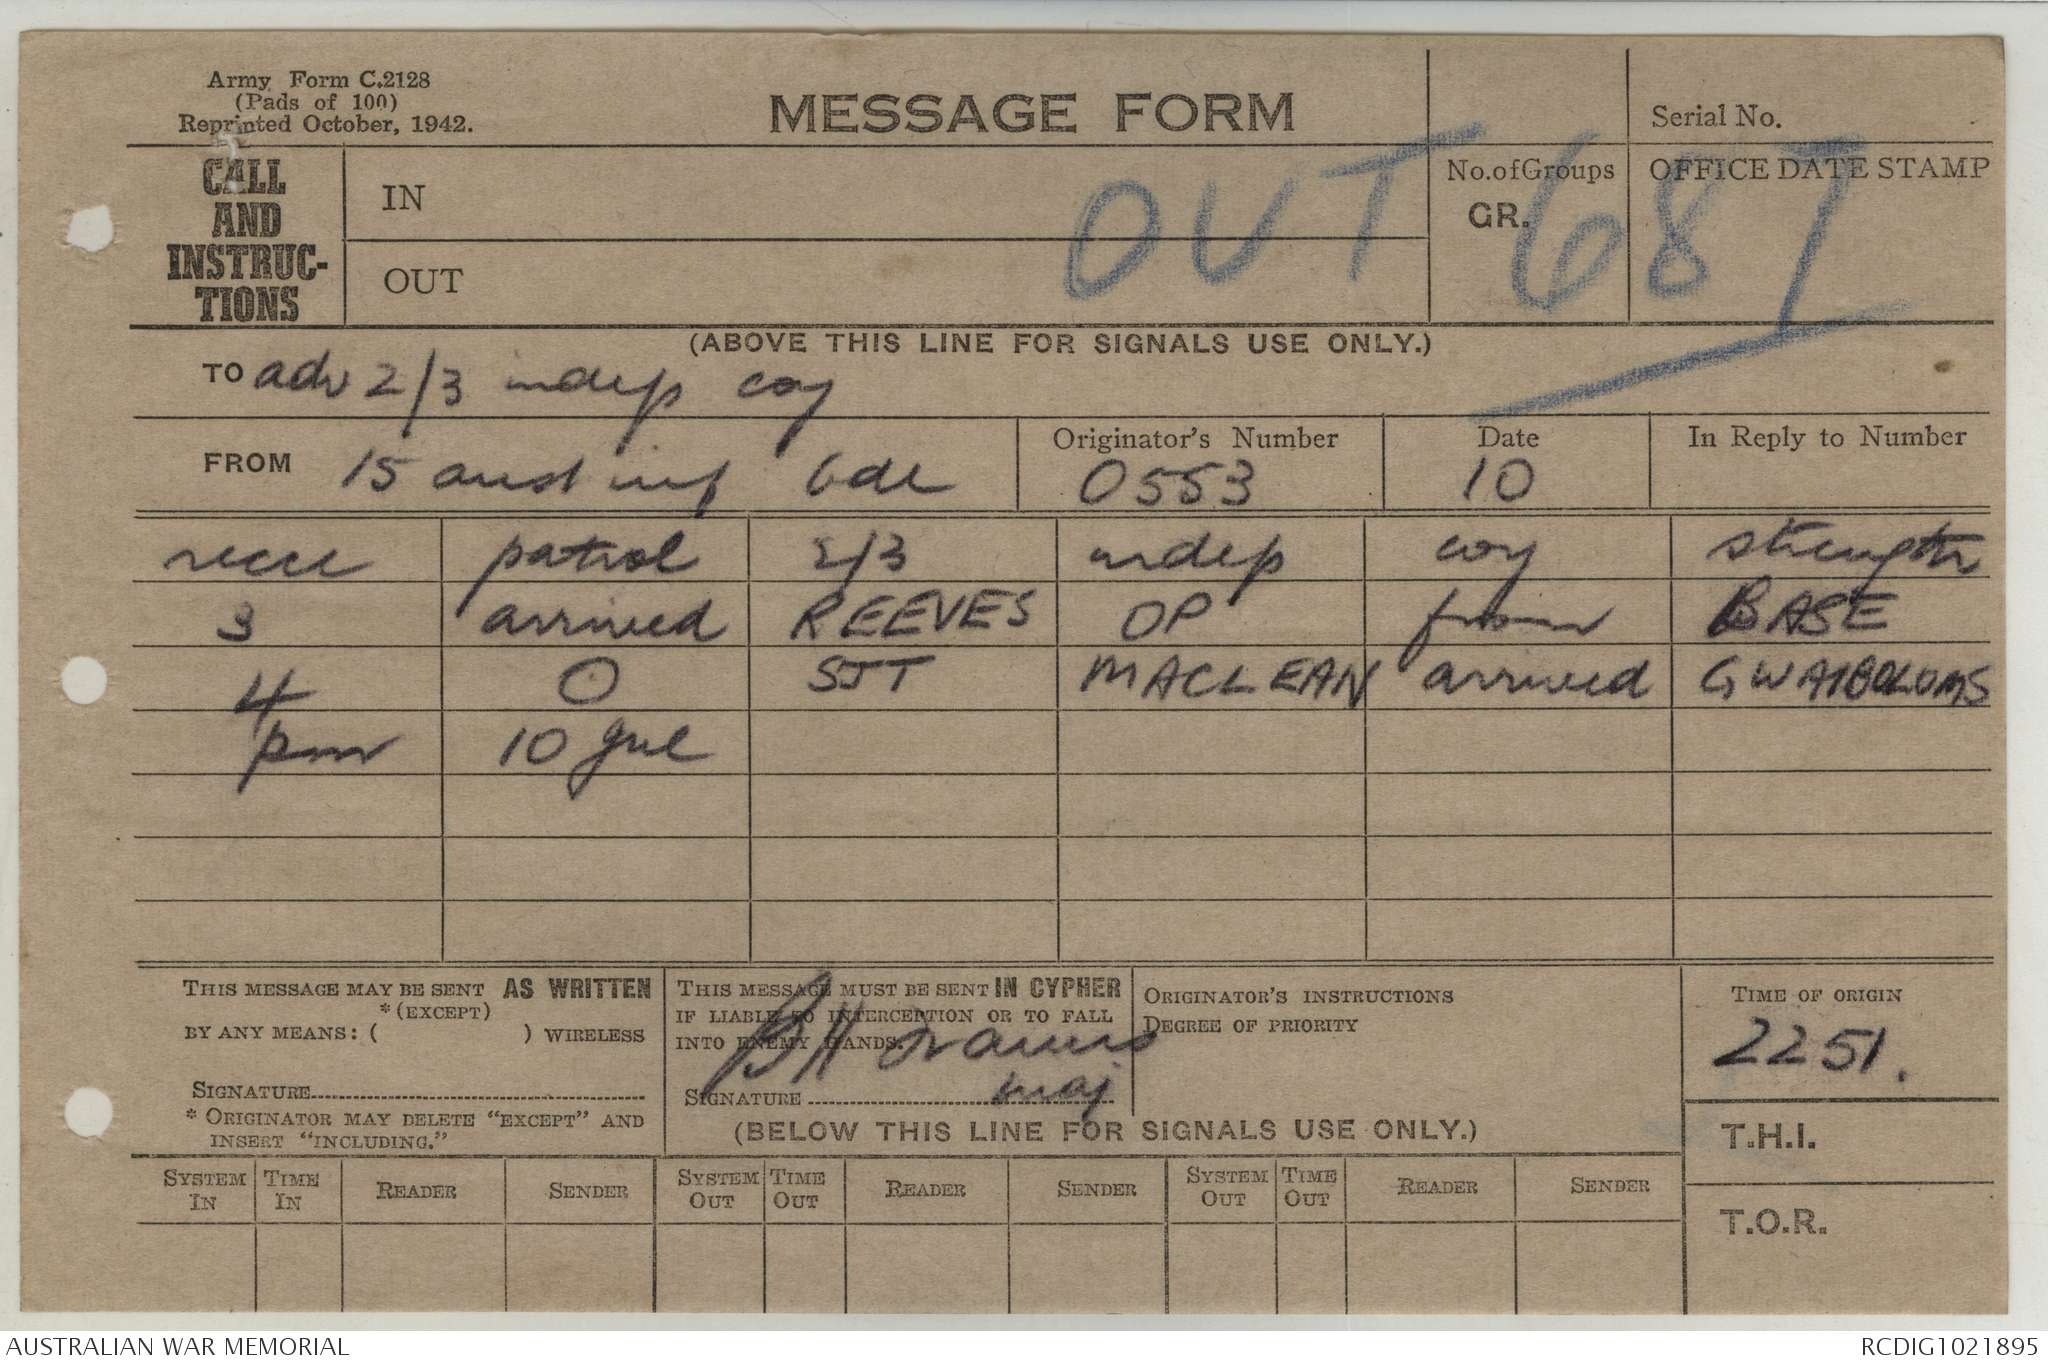 Army Form C.2128
(Pads of 100)
Reprinted October, 1942.
MESSAGE FORM
Serial No.
CALL
AND
INSTRUC-
TIONS
IN
OUT
No. of Groups
GR.
OFFICE DATE STAMP
OUT 687
(ABOVE THIS LINE FOR SIGNALS USE ONLY.)
TO adv 2/3 indep coy
FROM 15 aust inf bde
Originator's Number
0553
Date
10
In Reply to Number
recce patrol 2/3 indep coy strength
3 arrived REEVES OP from BASE
4 O SJT MACLEAN arrived
pm 10 Jul
THIS MESSAGE MAY BE SENT AS WRITTEN
*(EXCEPT)
BY ANY MEANS: ( ) WIRELESS
SIGNATURE
* ORIGINATOR MAY DELETE "EXCEPT" AND
INSERT "INCLUDING."
THIS MESSAGE MUST BE SENT IN CYPHER
IF LIABLE TO INTERCEPTION OR TO FALL
INTO ENEMY HANDS.
SIGNATURE
Maj
ORIGINATOR'S INSTRUCTIONS
DEGREE OF PRIORITY
TIME OF ORIGIN
2251.
(BELOW THIS LINE FOR SIGNALS USE ONLY.)
T.H.I.
T.O.R.
SYSTEM IN TIME IN READER SENDER SYSTEM OUT TIME OUT READER SENDER SYSTEM OUT TIME OUT READER SENDER
AUSTRALIAN WAR MEMORIAL
RCDIG1021895